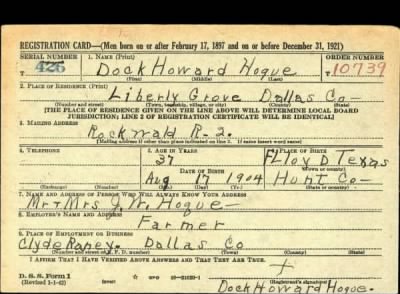 REGISTRATION CARD—(Men born on or after February 17, 1897 and on or before December 31, 1921)
SERIAL NUMBER 1. NAME (Print) ORDER NUMBER
T 426 Dock Howard Hogue T 10739
(First) (Middle) (Last)
2. PLACE OF RESIDENCE (Print)
Liberty Grove Dallas Co—
(Number and street) (Town, township, village, or city) (County) (State)
[THE PLACE OF RESIDENCE GIVEN ON THE LINE ABOVE WILL DETERMINE LOCAL BOARD
JURISDICTION; LINE 2 OF REGISTRATION CERTIFICATE WILL BE IDENTICAL]
3. MAILING ADDRESS
Rockwald R-2.
[Mailing address if other than place indicated on line 2. If same insert word same]
4. TELEPHONE 5. AGE IN YEARS 6. PLACE OF BIRTH
37 Floyd Texas
DATE OF BIRTH (Town or county)
Aug 17 1904 Hunt Co—
(Exchange) (Number) (Mo.) (Day) (Yr.) (State or country)
7. NAME AND ADDRESS OF PERSON WHO WILL ALWAYS KNOW YOUR ADDRESS
Mr + Mrs J. W. Hogue—
8. EMPLOYER'S NAME AND ADDRESS
Farmer
9. PLACE OF EMPLOYMENT OR BUSINESS
Clyde Raney. Dallas Co
(Number and street or R. F. D. number) (Town) (County) (State)
I AFFIRM THAT I HAVE VERIFIED ABOVE ANSWERS AND THAT THEY ARE TRUE.
D. S. S. Form 1
(Revised 1-1-42) (over)
Dock Howard Hogue.
(Registrant's signature)